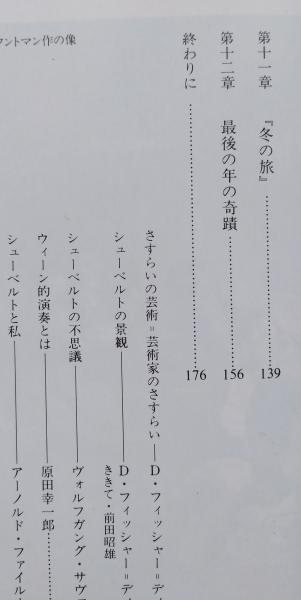 第十一章 『冬の旅』……………………………139
第十二章 最後の年の奇蹟……………………156
終わりに……………………………………………176
さすらいの芸術＝芸術家のさすらい──D・フィッシャー＝デ
シューベルトの景観────D・フィッシャー＝ディ
ききて・前田昭雄
シューベルトの不思議────ヴォルフガング・サヴァ
ウィーン的演奏とは────原田幸一郎…………
シューベルトと私────アーノルド・ファイル
作の像